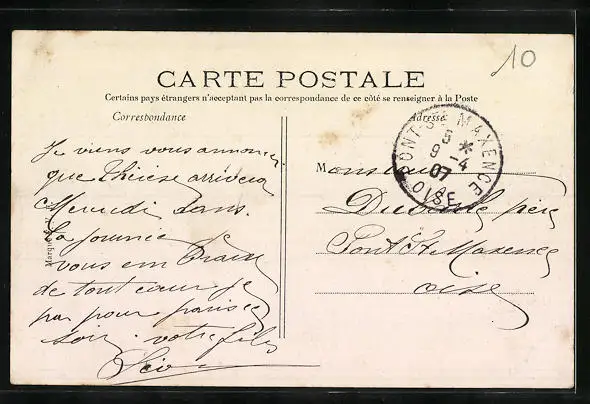 10
CARTE POSTALE
Certains pays étrangers n'acceptant pas la correspondance de ce côté se renseigner à la Poste
Correspondance
Adresse
PONT-STE MAXENCE
OISE
5
8 -4
07
Je viens vous annoncer
que Thérèse arrivera
Mercredi dans
la journée je
vous embrasse
de tout cœur je
par pour
soir votre fils
Léo
Monsieur
père
Pont Ste Maxence
Oise